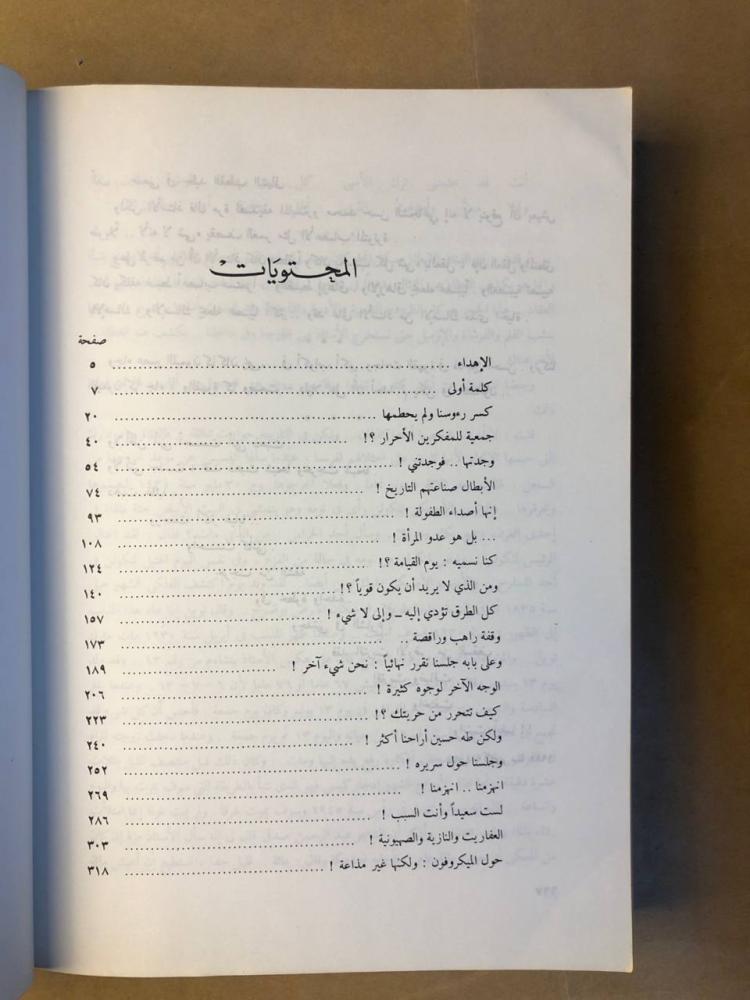 المحتويَات
صفحة
الإهداء ........................................ ٥
كلمة أولى ........................................ ٧
كسر رءوسنا ولم يحطمها ........................................ ٢٠
جمعية للمفكرين الأحرار ؟! ........................................ ٤٠
وجدتها .. فوجدتني ! ........................................ ٥٤
الأبطال صناعتهم التاريخ ! ........................................ ٧٤
إنها أصداء الطفولة ! ........................................ ٩٣
... بل هو عدو المرأة ! ........................................ ١٠٨
كنا نسميه : يوم القيامة ؟! ........................................ ١٢٤
ومن الذي لا يريد أن يكون قوياً ؟! ........................................ ١٤٠
كل الطرق تؤدي إليه ـ وإلى لا شيء ! ........................................ ١٥٧
وقفة راهب وراقصة .. ........................................ ١٧٣
وعلى بابه جلسنا نقرر نهائياً : نحن شيء آخر ! ........................................ ١٨٩
الوجه الآخر لوجوه كثيرة ! ........................................ ٢٠٦
كيف تتحرر من حريتك ؟! ........................................ ٢٢٣
ولكن طه حسين أراحنا أكثر ! ........................................ ٢٤٠
وجلسنا حول سريره ! ........................................ ٢٥٢
انهزمنا .. انهزمنا ! ........................................ ٢٦٩
لست سعيداً وأنت السبب ! ........................................ ٢٨٦
العفاريت والنازية والصهيونية ! ........................................ ٣٠٣
حول الميكروفون : ولكنها غير مذاعة ! ........................................ ٣١٨